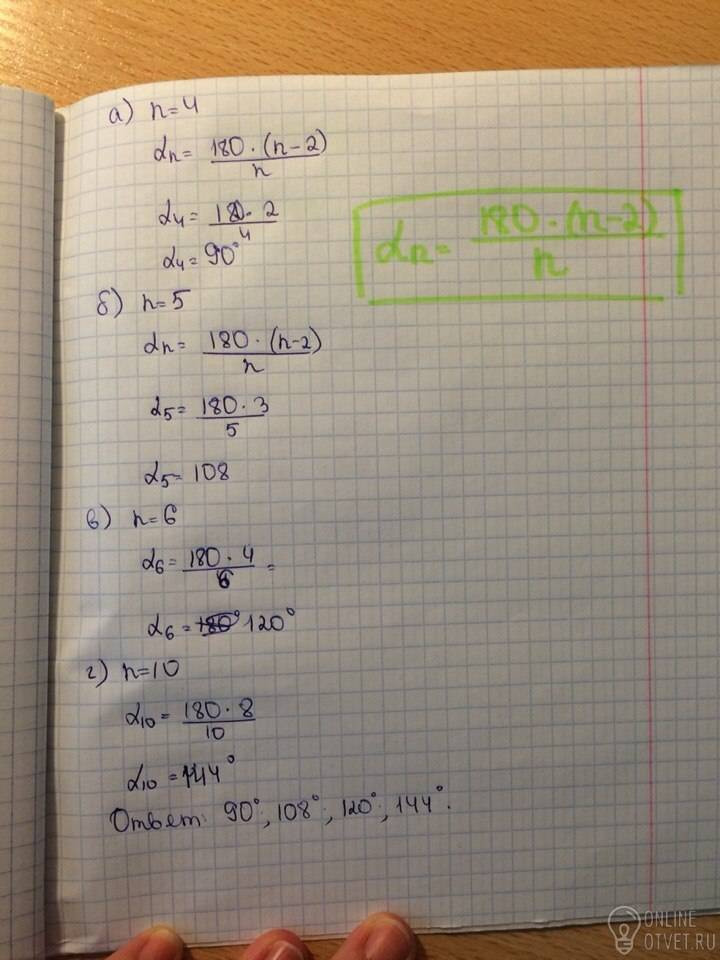 а) n=4
αn= 180·(n-2)/n
α4= 180·2/4
α4= 90°
αn= 180·(n-2)/n
б) n=5
αn= 180·(n-2)/n
α5= 180·3/5
α5= 108
в) n=6
α6= 180·4/6 =
α6= 120°
г) n=10
α10= 180·8/10
α10=144°
Ответ: 90°; 108°; 120°; 144°.
ONLINE
OTVET.RU